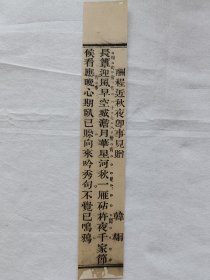 酬程近秋夜卽事見贈 韓翃
長簟迎風早空城澹月華星河秋一雁砧杵夜千家節
候看應晚心期臥已賒向來吟秀句不覺已鳴鴉